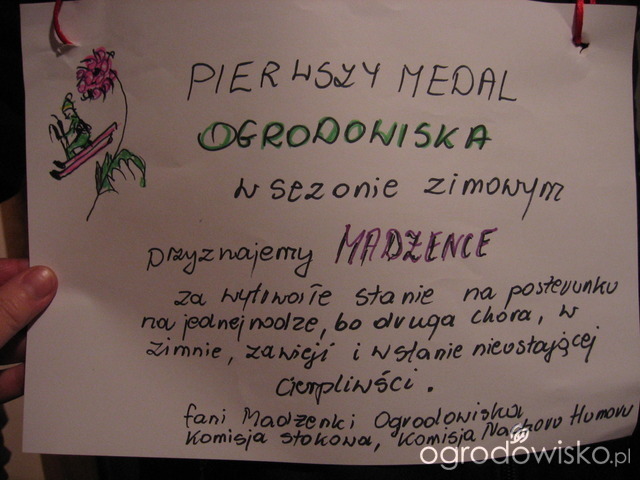 PIERWSZY MEDAL
OGRODOWISKA
w sezonie zimowym
przyznajemy MADŻENCE
za wytrwałe stanie na posterunku
na jednej nodze, bo druga chora, w
zimnie, zawieji i wstanie nieustającej
cierpliwści.
fani Madżenki Ogrodowiska
Komisja stokowa, Komisja Nadzoru Humoru
ogrodowisko.pl